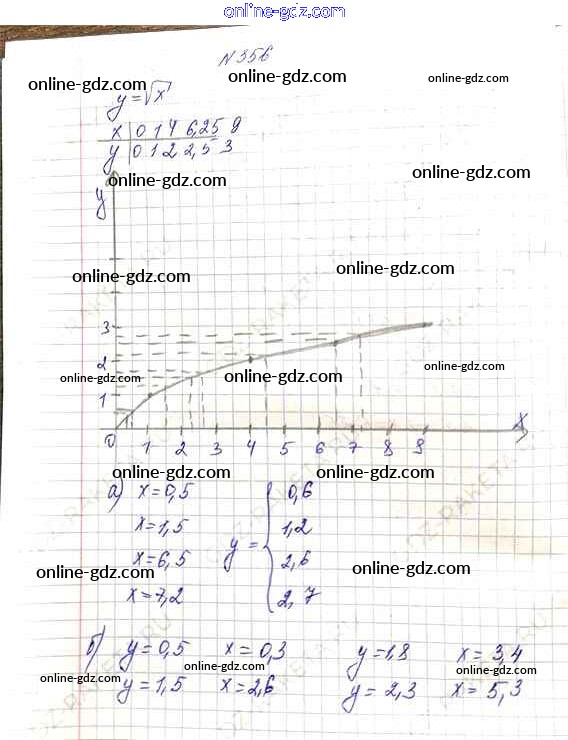 online-gdz.com
N 356
online-gdz.com online-gdz.com online-gdz.com
y = √x
x | 0 1 4 6,25 9
y | 0 1 2 2,5 3
online-gdz.com online-gdz.com
y
online-gdz.com online-gdz.com
3
2
online-gdz.com online-gdz.com online-gdz.com
1
x
0 1 2 3 4 5 6 7 8 9
online-gdz.com online-gdz.com
а) x = 0,5 0,6
x = 1,5 1,2
y =
x = 6,5 2,6
online-gdz.com online-gdz.com
x = 7,2 2,7
б) y = 0,5 x = 0,3 y = 1,8 x = 3,4
online-gdz.com online-gdz.com online-gdz.com
y = 1,5 x = 2,6 y = 2,3 x = 5,3